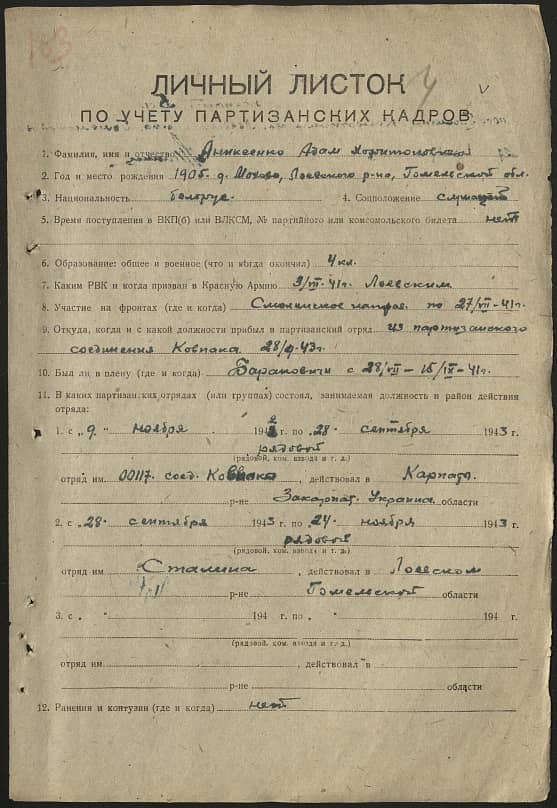 183
ЛИЧНЫЙ ЛИСТОК 4
ПО УЧЕТУ ПАРТИЗАНСКИХ КАДРОВ
1. Фамилия, имя и отчество Аникеенко Адам Харитонович
2. Год и место рождения 1905 д. Мохово, Лоевского р-на, Гомельской обл.
3. Национальность белорус. 4. Соцположение служащий
5. Время поступления в ВКП(б) или ВЛКСМ, № партийного или комсомольского билета нет
6. Образование: общее и военное (что и когда окончил) 4 кл.
7. Каким РВК и когда призван в Красную Армию 3/VII-41г. Лоевским
8. Участие на фронтах (где и когда) Смоленское направ. по 27/VII-41г.
9. Откуда, когда и с какой должности прибыл в партизанский отряд из партизанского
соединения Ковпака 28/9-43г.
10. Был ли в плену (где и когда) Барановичи с 28/VII — 15/IX-41г.
11. В каких партизанских отрядах (или группах) состоял, занимаемая должность и район действия
отряда:
1. с „9" ноября 1942 г. по „28" сентября 1943 г.
рядовой
(рядовой, ком. взвода и т. д.)
отряд им. 00117. соед. Ковпака, действовал в Карпатах
р-не Закарпат. Украина области
2. с „28" сентября 1943 г. по „24" ноября 1943 г.
рядовой
(рядовой, ком. взвода и т. д.)
отряд им Сталина, действовал в Лоевском
р-не Гомельской области
3. с „ " 194 г. по „ " 194 г.
(рядовой, ком. взвода и т. д.)
отряд им , действовал в
р-не области
12. Ранения и контузии (где и когда) нет